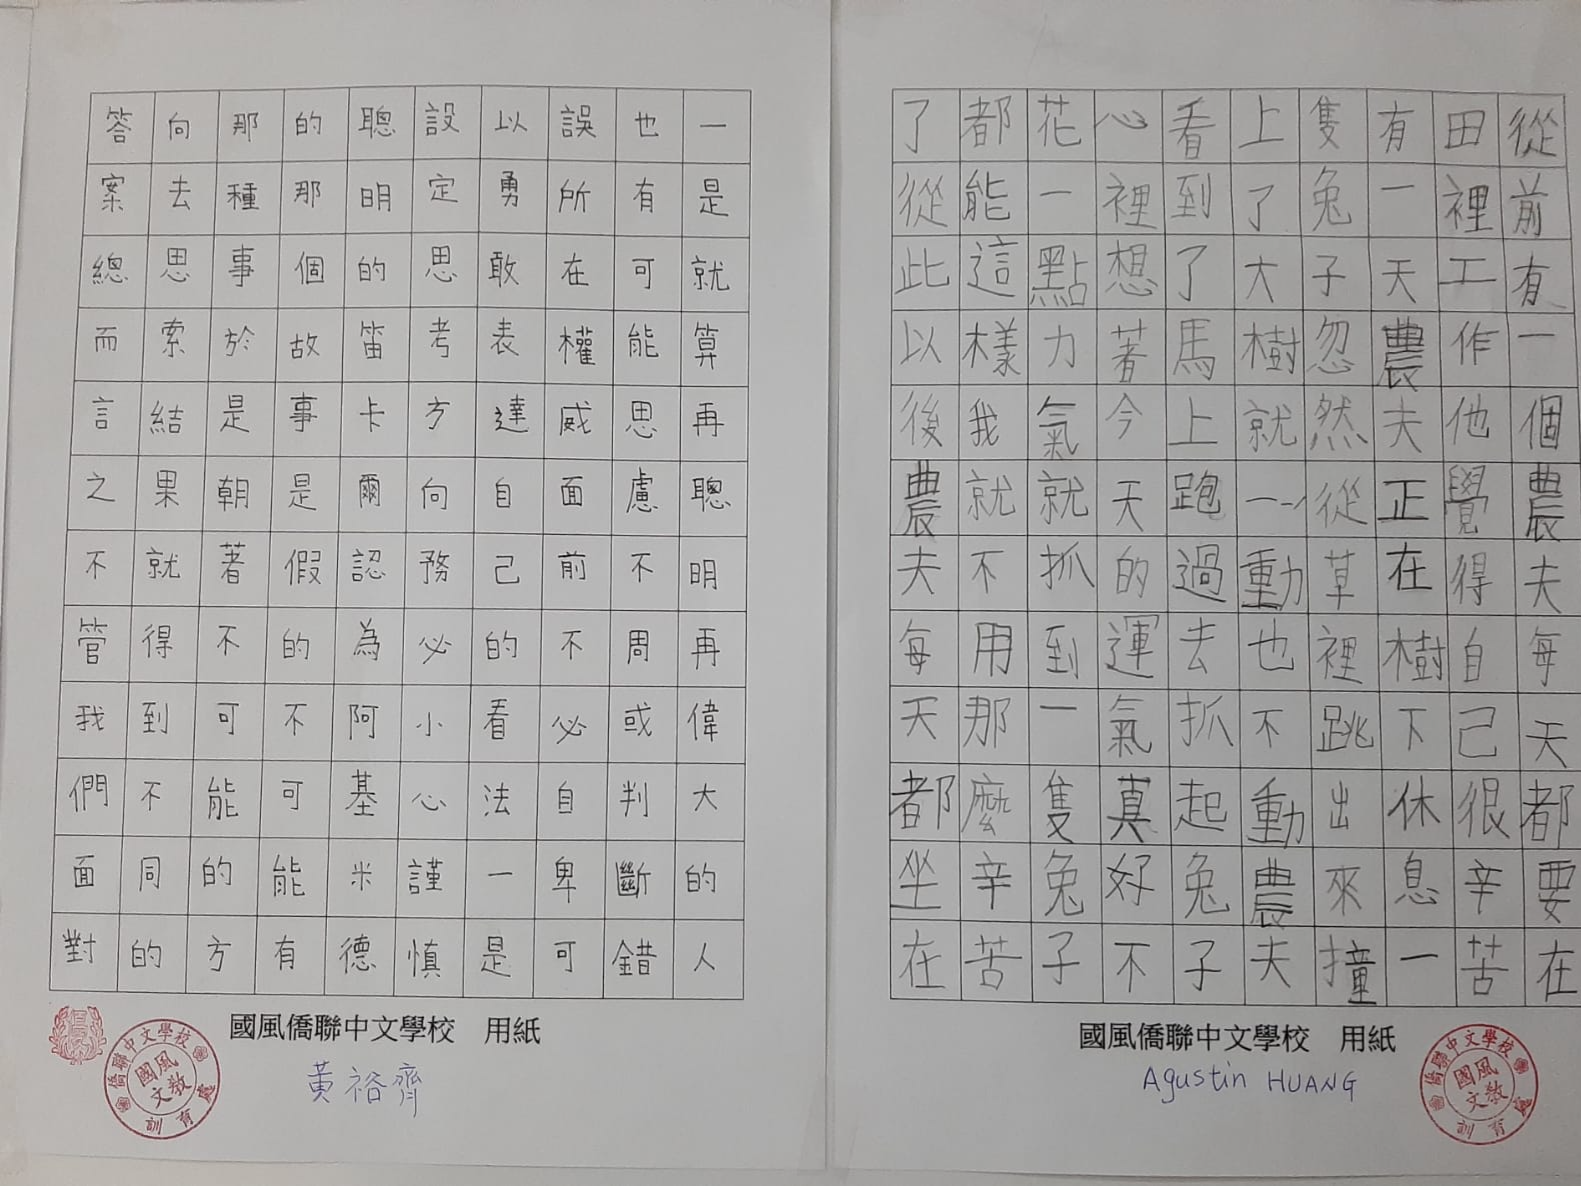 一是就算再聰明再偉大的人
也有可能思慮不周或判斷錯
誤所在權威面前不必自卑可
以勇敢表達自己的看法一是
設定思考方向務必小心謹慎
聰明的笛卡爾認為阿基米德
的那個故事是假的不可能有
那種事於是朝著不可能的方
向去思索結果就得到不同的
答案總而言之不管我們面對
國風僑聯中文學校 用紙
黃裕齊
從前有一個農夫每天都要在
田裡工作他覺得自己很辛苦
有一天農夫正在樹下休息一
隻兔子忽然從草裡跳出來撞
上了大樹就一動也不動農夫
看到了馬上跑過去抓起兔子
心裡想著今天的運氣真好不
花一點力氣就抓到一隻兔子
都能這樣我就不用那麼辛苦
了從此以後農夫每天都坐在
國風僑聯中文學校 用紙
Agustin HUANG
僑聯中文學校
國風文教
訓育處
僑聯中文學校
國風文教
訓育處